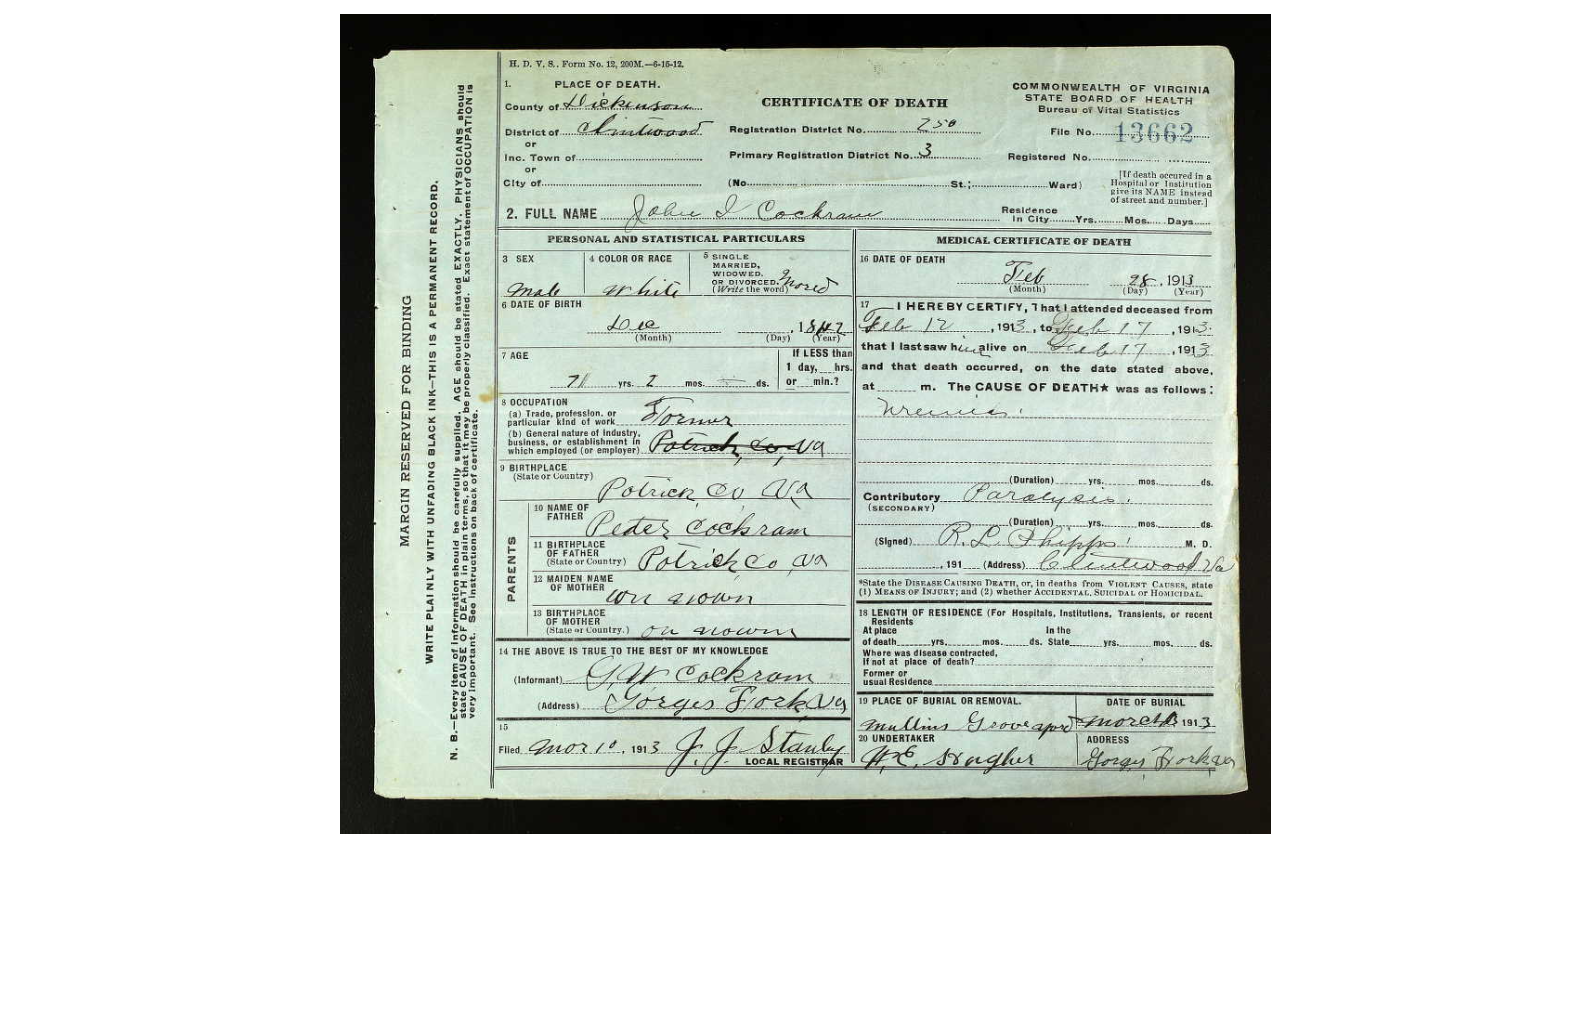 H. D. V. S., Form No. 12, 200M.—6-15-12.
1. PLACE OF DEATH.
County of Dickenson
District of Clintwood
or
Inc. Town of
or
City of
CERTIFICATE OF DEATH
Registration District No. 250
Primary Registration District No. 3
(No. St.; Ward)
COMMONWEALTH OF VIRGINIA
STATE BOARD OF HEALTH
Bureau of Vital Statistics
File No. 13662
Registered No.
[If death occured in a
Hospital or Institution
give its NAME instead
of street and number.]
2. FULL NAME John I Cockram
Residence
In City Yrs. Mos. Days
PERSONAL AND STATISTICAL PARTICULARS
3 SEX
Male
4 COLOR OR RACE
White
5 SINGLE
MARRIED,
WIDOWED,
OR DIVORCED.
(Write the word)
6 DATE OF BIRTH
Dec , 1842
(Month) (Day) (Year)
7 AGE
71 yrs. 2 mos. — ds.
If LESS than
1 day, hrs.
or min.?
8 OCCUPATION
(a) Trade, profession, or
particular kind of work Former
(b) General nature of industry,
business, or establishment in
which employed (or employer) Patrick Co, Va
9 BIRTHPLACE
(State or Country)
Potrick Co Va
PARENTS
10 NAME OF
FATHER
Peter Cockram
11 BIRTHPLACE
OF FATHER
(State or Country) Potrick Co Va
12 MAIDEN NAME
OF MOTHER
on nown
13 BIRTHPLACE
OF MOTHER
(State or Country.) on nown
14 THE ABOVE IS TRUE TO THE BEST OF MY KNOWLEDGE
(Informant) G W Cockram
(Address) Gorges Fork Va
15
Filed Mor 10, 1913 J. J. Stanly
LOCAL REGISTRAR
MEDICAL CERTIFICATE OF DEATH
16 DATE OF DEATH
Feb 28, 1913
(Month) (Day) (Year)
17 I HEREBY CERTIFY, That I attended deceased from
Feb 12, 1913, to Feb 17, 1913
that I last saw him alive on Feb 17, 1913
and that death occurred, on the date stated above,
at m. The CAUSE OF DEATH★ was as follows:
Uremia.
(Duration) yrs. mos. ds.
Contributory Paralysis.
(SECONDARY)
(Duration) yrs. mos. ds.
(Signed) R. L. Phipps M. D.
, 191 (Address) Clintwood Va
*State the DISEASE CAUSING DEATH, or, in deaths from VIOLENT CAUSES, state
(1) MEANS OF INJURY; and (2) whether ACCIDENTAL, SUICIDAL or HOMICIDAL.
18 LENGTH OF RESIDENCE (For Hospitals, Institutions, Transients, or recent
Residents
At place In the
of death yrs. mos. ds. State yrs. mos. ds.
Where was disease contracted,
if not at place of death?
Former or
usual Residence
19 PLACE OF BURIAL OR REMOVAL.
Mullins Grove
DATE OF BURIAL
March 1913
20 UNDERTAKER
ADDRESS
Gorges Fork Va
MARGIN RESERVED FOR BINDING
WRITE PLAINLY WITH UNFADING BLACK INK—THIS IS A PERMANENT RECORD.
N. B.—Every item of information should be carefully supplied. AGE should be stated EXACTLY. PHYSICIANS should
state CAUSE OF DEATH in plain terms, so that it may be properly classified. Exact statement of OCCUPATION is
very important. See instructions on back of certificate.